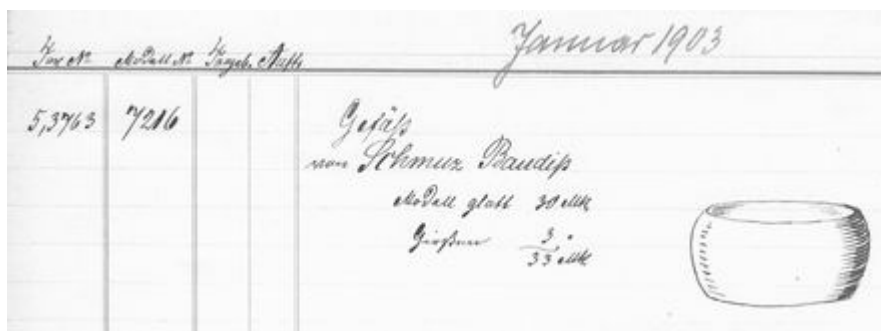 Januar 1903
Inv. № Modell № Angeb. Auftr.
5,3763 7216
Gefäß
von Schmuz Baudiß
Modell glatt 30 Mk
3 "
33 Mk